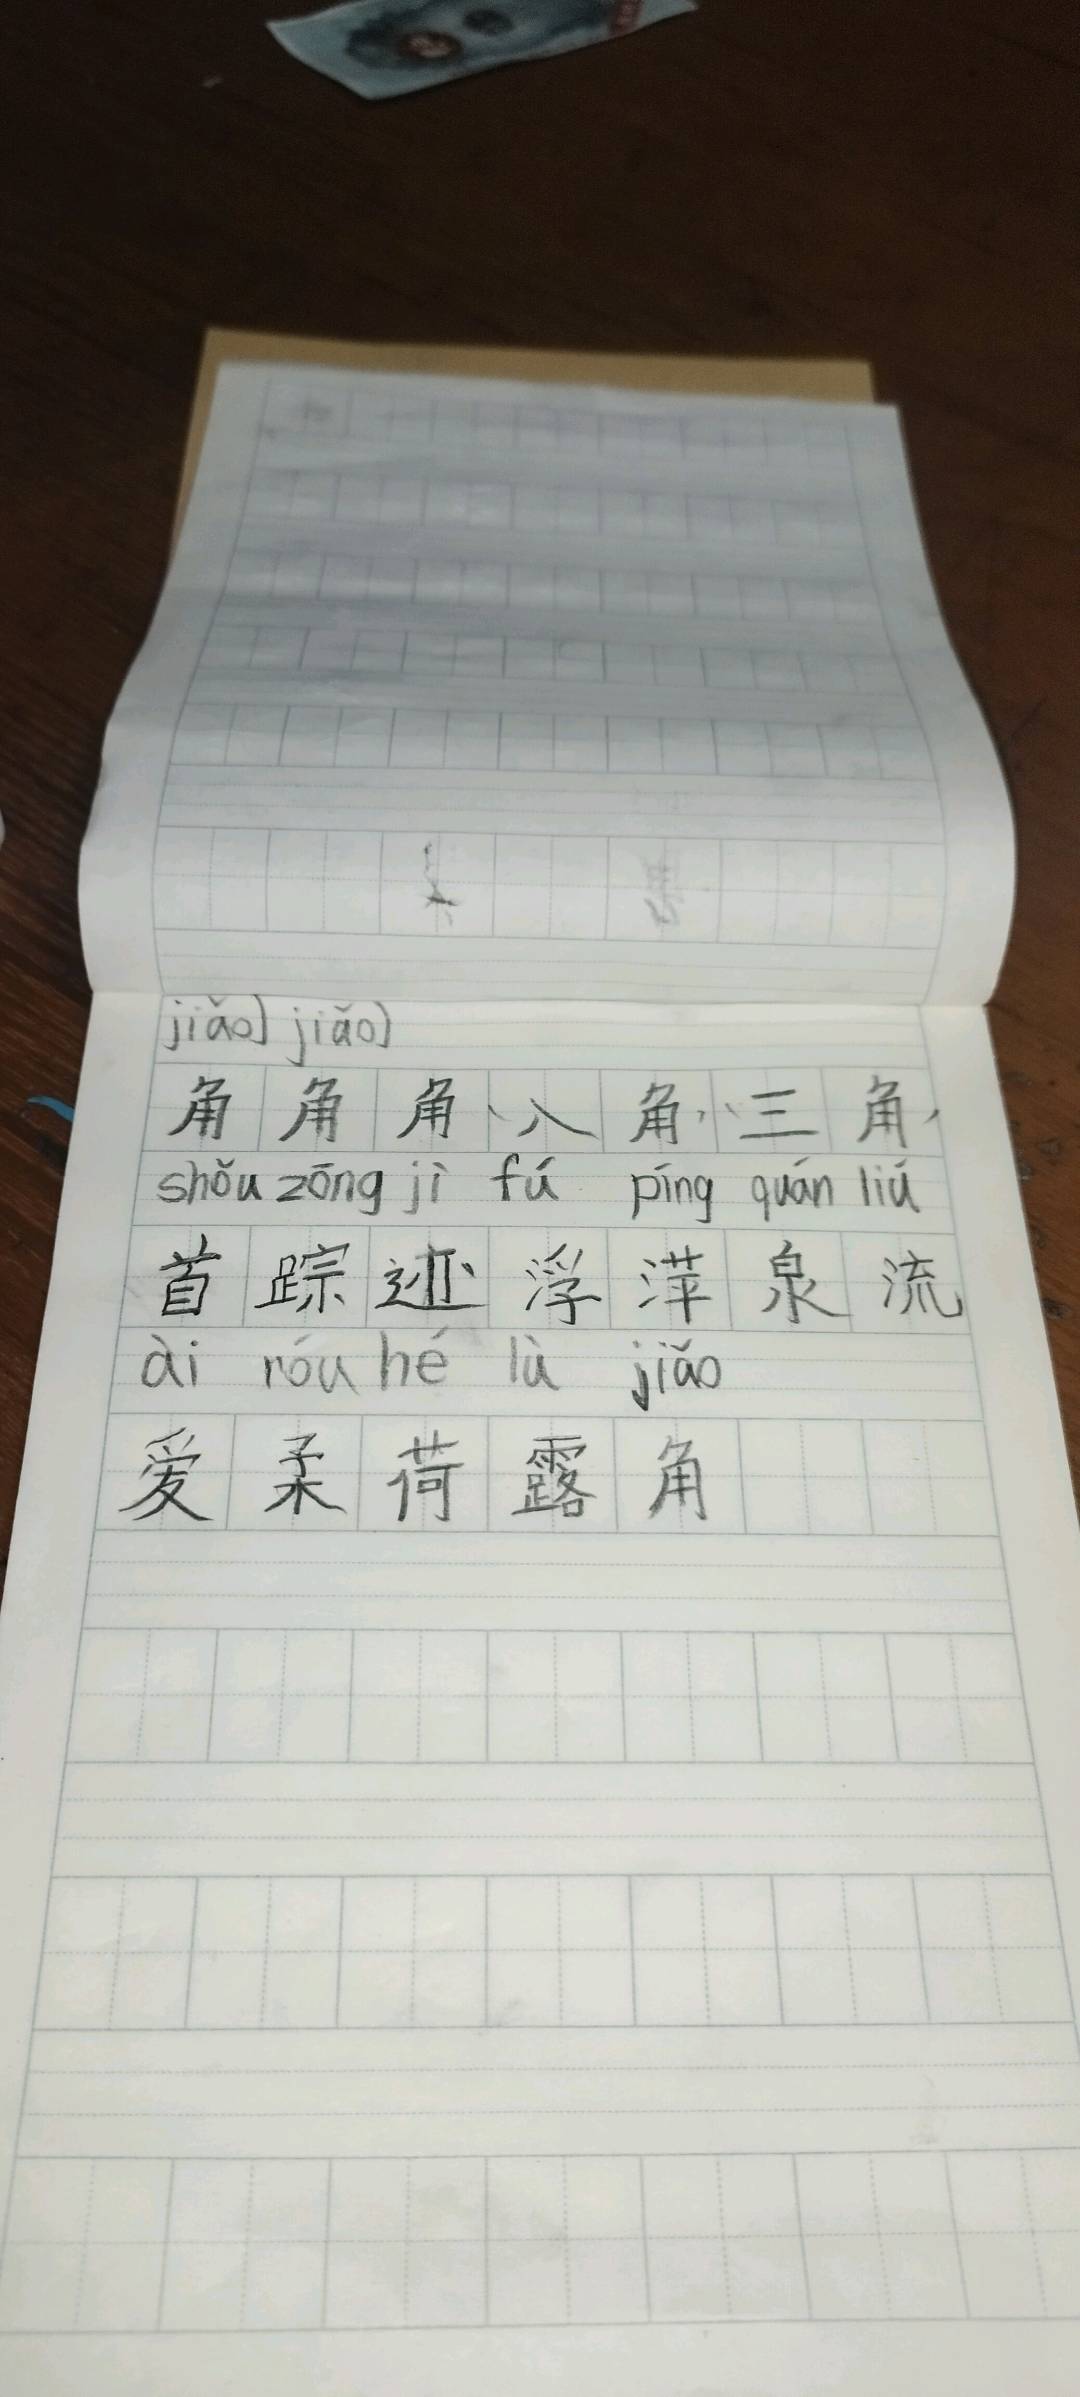 jiǎo] jiǎo]
角角角、八角，、三角，
shǒu zōng jì fú píng quán liú
首踪迹浮萍泉流
ài róu hé lù jiǎo
爱柔荷露角